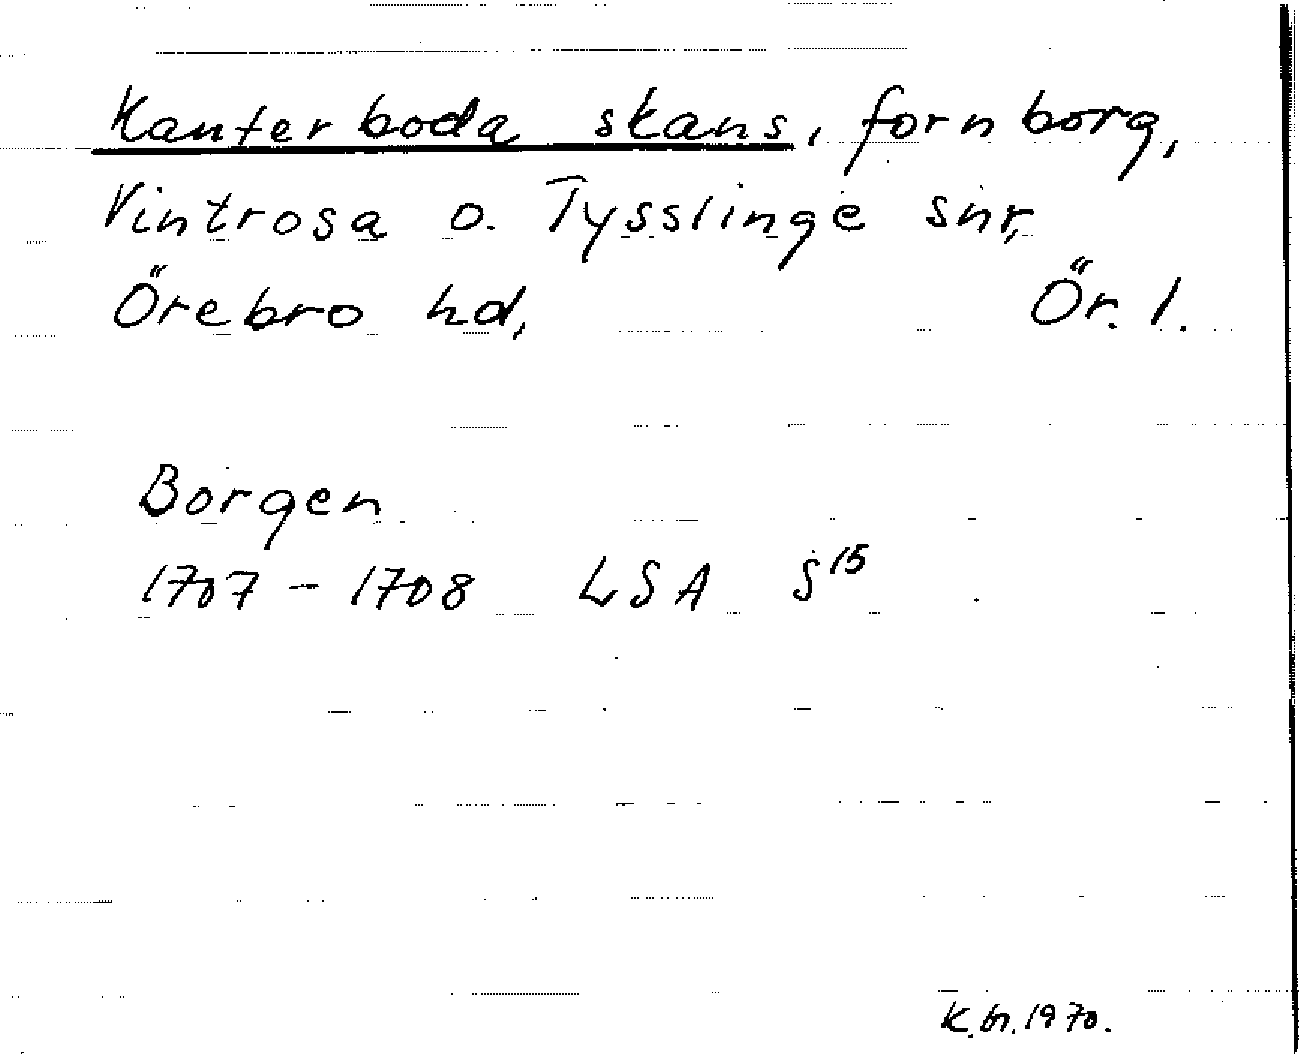 Kanterboda skans, fornborg,
Vintrosa o. Tysslinge snr,
Örebro hd, Ör. l.
Borgen
1707 - 1708 LSA S 15
K. Gr. 1970.